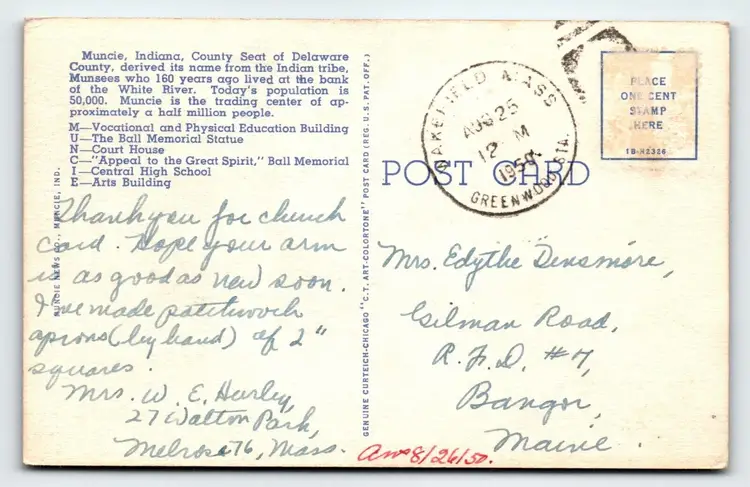 Muncie, Indiana, County Seat of Delaware
County, derived its name from the Indian tribe,
Munsees who 160 years ago lived at the bank
of the White River. Today's population is
50,000. Muncie is the trading center of ap-
proximately a half million people.
M—Vocational and Physical Education Building
U—The Ball Memorial Statue
N—Court House
C—"Appeal to the Great Spirit," Ball Memorial
I—Central High School
E—Arts Building
Thank you for church
card. Hope your arm
is as good as new soon.
I've made patchwork
aprons (by hand) of 2"
squares.
Mrs. W. E. Hurley,
27 Walton Park,
Melrose 76, Mass.
MUNCIE NEWS CO., MUNCIE, IND.
GENUINE CURTEICH-CHICAGO "C.T. ART-COLORTONE" POST CARD (REG. U.S. PAT. OFF.)
POST CARD
WAKEFIELD MASS
AUG 25
12 M
1950
GREENWOOD STA.
PLACE
ONE CENT
STAMP
HERE
1B-H2326
Mrs. Edythe Densmore,
Gilman Road,
R.F.D. #7,
Bangor,
Maine.
Ans 8/26/50.